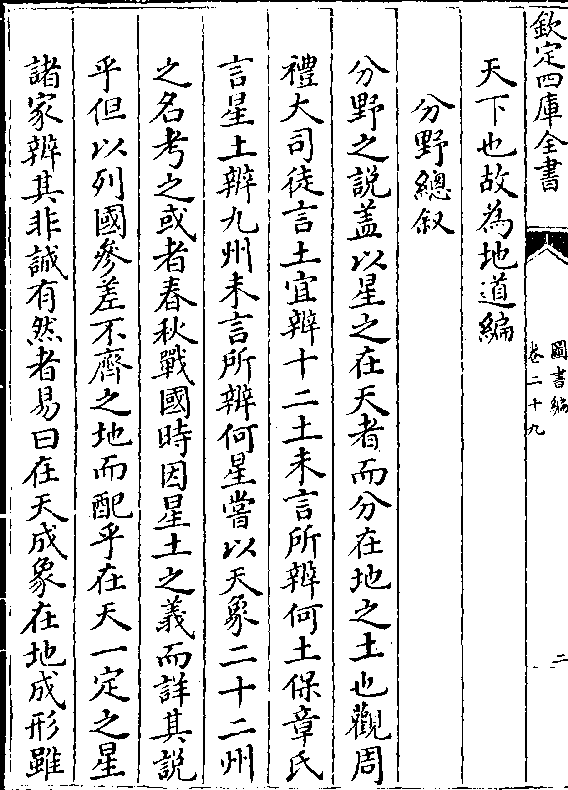 欽定四庫全書
圖書編
卷二十九
二
天下也故為地道編
分野總叙
分野之說蓋以星之在天者而分在地之土也觀周
禮大司徒言土宜辨十二土未言所辨何土保章氏
言星土辨九州未言所辨何星嘗以天象二十二州
之名考之或者春秋戰國時因星土之義而詳其說
乎但以列國參差不齊之地而配乎在天一定之星
諸家辨其非誠有然者易曰在天成象在地成形雖